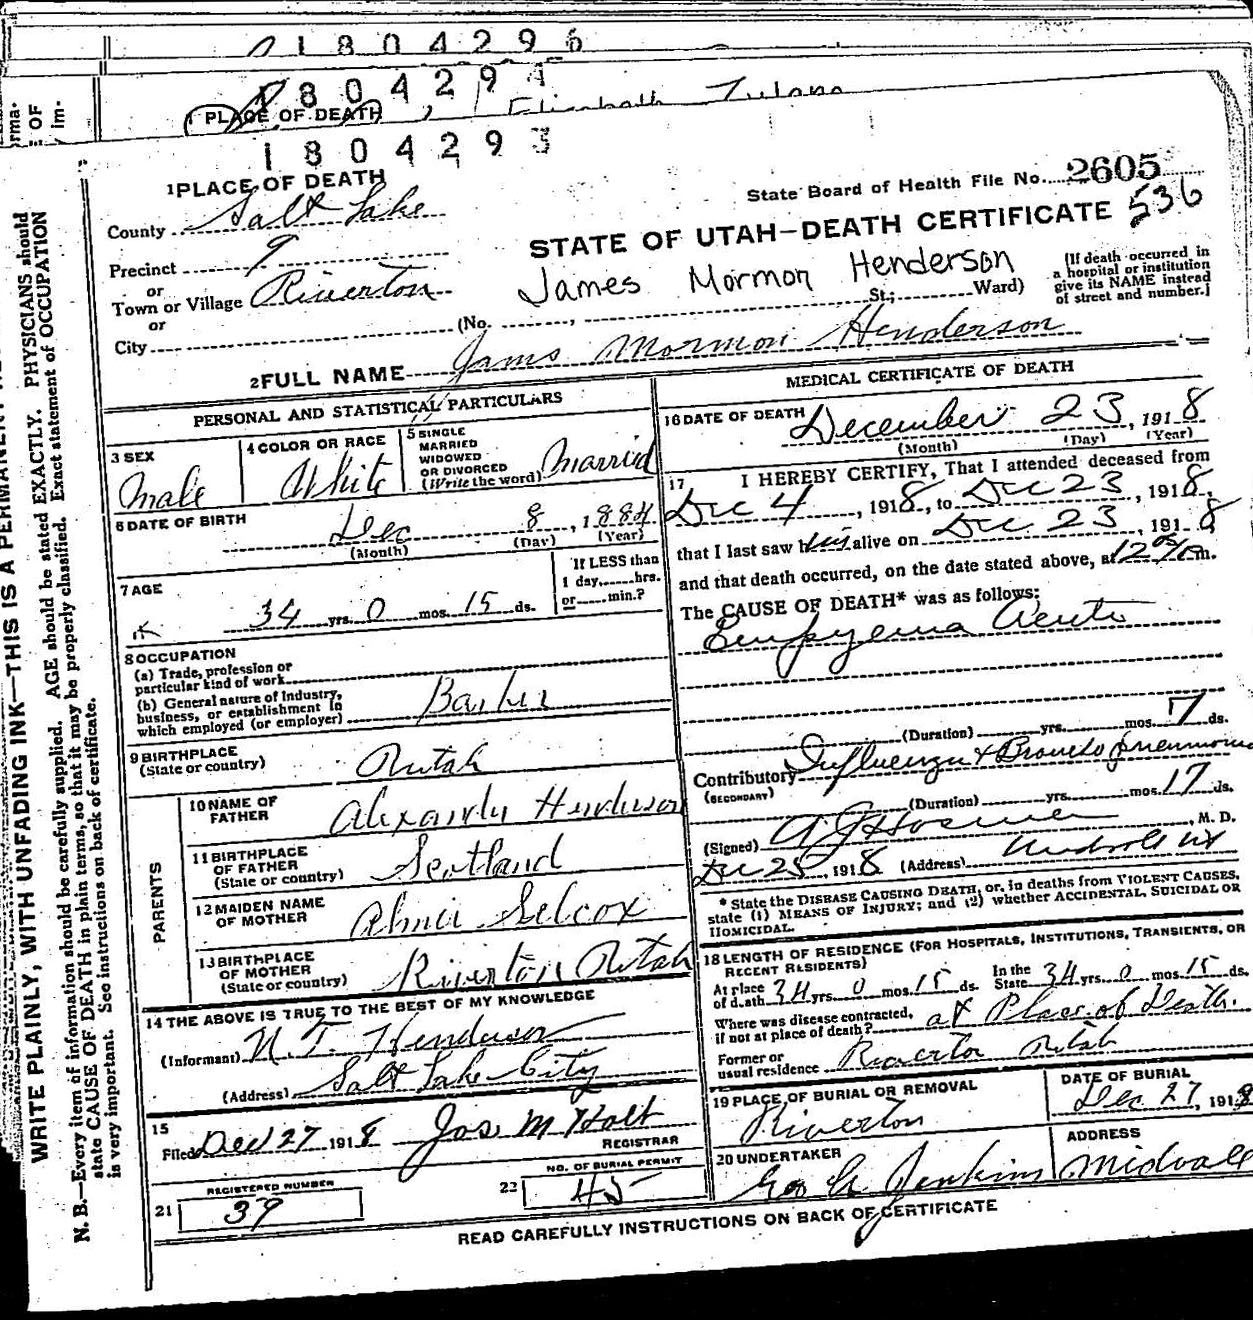 1 8 0 4 2 9 6
1 8 0 4 2 9 4
1 PLACE OF DEATH
Elizabeth
1 8 0 4 2 9 3
1 PLACE OF DEATH
State Board of Health File No. 2605
536
County Salt Lake
STATE OF UTAH—DEATH CERTIFICATE
Precinct 9
or
Town or Village Riverton
James Mormon Henderson
(If death occurred in a hospital or institution give its NAME instead of street and number.)
or
City (No. , St.; Ward)
2 FULL NAME James Mormon Henderson
PERSONAL AND STATISTICAL PARTICULARS
3 SEX
Male
4 COLOR OR RACE
White
5 SINGLE
MARRIED
WIDOWED
OR DIVORCED
(Write the word) Married
6 DATE OF BIRTH
Dec 8, 1884
(Month) (Day) (Year)
7 AGE
34 yrs. 0 mos. 15 ds.
If LESS than
1 day, hrs.
or min.?
8 OCCUPATION
(a) Trade, profession or
particular kind of work
(b) General nature of Industry,
business, or establishment in
which employed (or employer) Barber
9 BIRTHPLACE
(State or country) Utah
PARENTS
10 NAME OF
FATHER Alexander Henderson
11 BIRTHPLACE
OF FATHER
(State or country) Scotland
12 MAIDEN NAME
OF MOTHER Silcox
13 BIRTHPLACE
OF MOTHER
(State or country) Riverton Utah
14 THE ABOVE IS TRUE TO THE BEST OF MY KNOWLEDGE
(Informant) N. T. Henderson
(Address) Salt Lake City
15
Filed Dec 27 1918 Jos M Holt
REGISTRAR
21 REGISTERED NUMBER
39
22 NO. OF BURIAL PERMIT
45
MEDICAL CERTIFICATE OF DEATH
16 DATE OF DEATH
December 23, 1918
(Month) (Day) (Year)
17 I HEREBY CERTIFY, That I attended deceased from
Dec 4, 1918, to Dec 23, 1918,
that I last saw him alive on Dec 23, 1918
and that death occurred, on the date stated above, at 12 05 m.
The CAUSE OF DEATH* was as follows:
Empyema Acute
(Duration) yrs. mos. 7 ds.
Contributory Influenza & Broncho pneumonia
(SECONDARY)
(Duration) yrs. mos. 17 ds.
(Signed) M. D.
Dec 25, 1918 (Address)
* State the DISEASE CAUSING DEATH, or, in deaths from VIOLENT CAUSES,
state (1) MEANS OF INJURY; and (2) whether ACCIDENTAL, SUICIDAL OR
HOMICIDAL.
18 LENGTH OF RESIDENCE (FOR HOSPITALS, INSTITUTIONS, TRANSIENTS, OR
RECENT RESIDENTS)
At place
of death 34 yrs. 0 mos. 15 ds. In the State 34 yrs. 0 mos. 15 ds.
Where was disease contracted,
if not at place of death? at Place of Death.
Former or
usual residence Riverton Utah
19 PLACE OF BURIAL OR REMOVAL
Riverton
DATE OF BURIAL
Dec 27, 1918
20 UNDERTAKER
Jenkins
ADDRESS
Midvale
READ CAREFULLY INSTRUCTIONS ON BACK OF CERTIFICATE
WRITE PLAINLY, WITH UNFADING INK—THIS IS A PERMANENT
N. B.—Every item of information should be carefully supplied. AGE should be stated EXACTLY. PHYSICIANS should
state CAUSE OF DEATH in plain terms, so that it may be properly classified. Exact statement of OCCUPATION
is very important. See instructions on back of certificate.